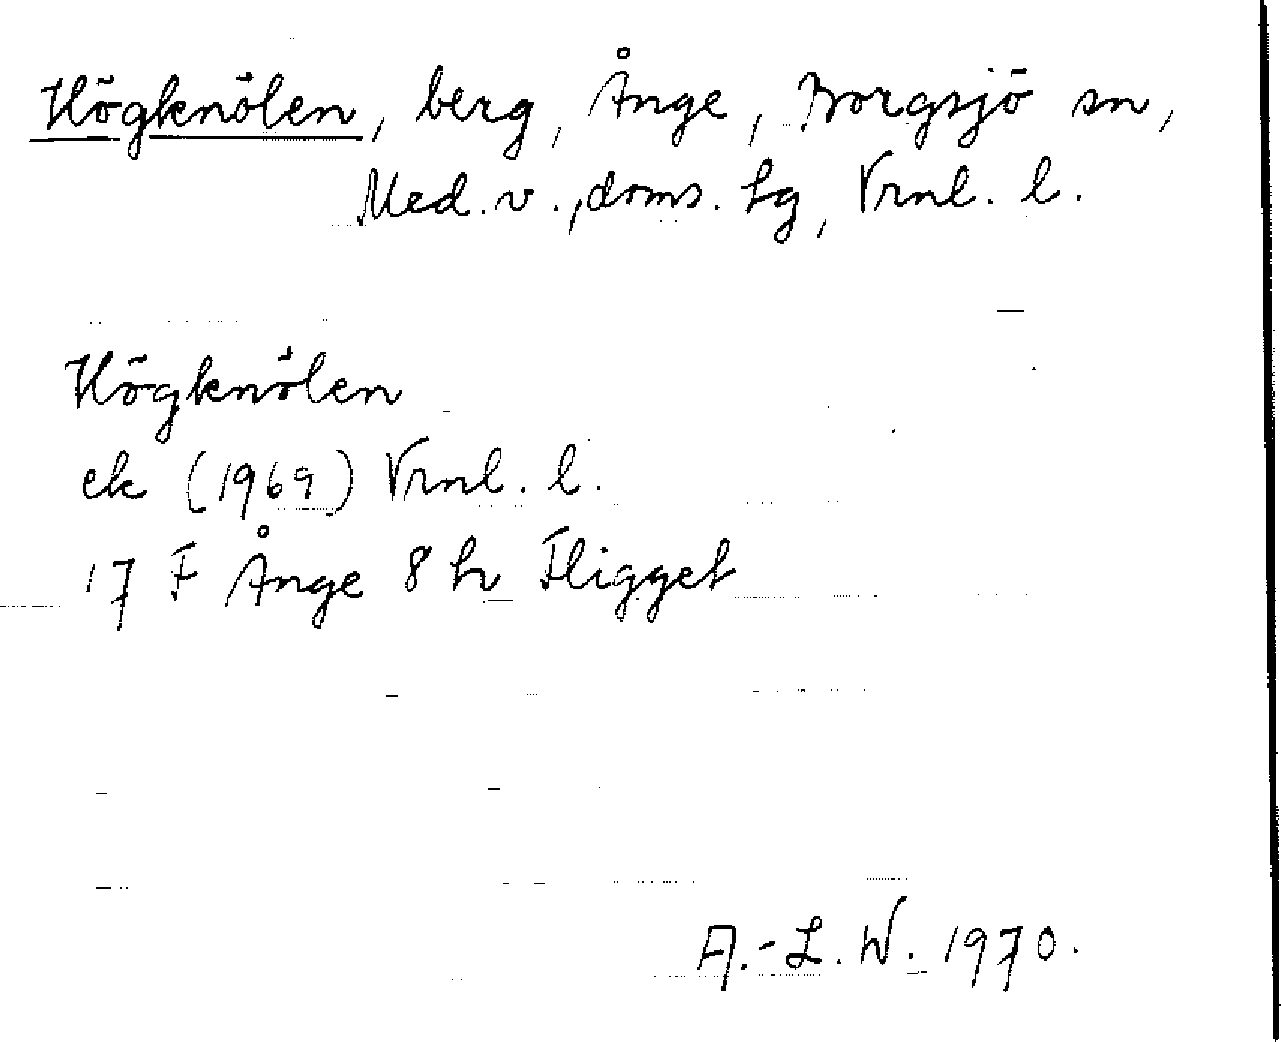 Högknölen, berg, Ånge, Borgsjö sn,
Med. v., doms. hg, Vrnl. l.
Högknölen
ek (1969) Vrnl. l.
17 F Ånge 8 h Fligget
A.-L. W. 1970.